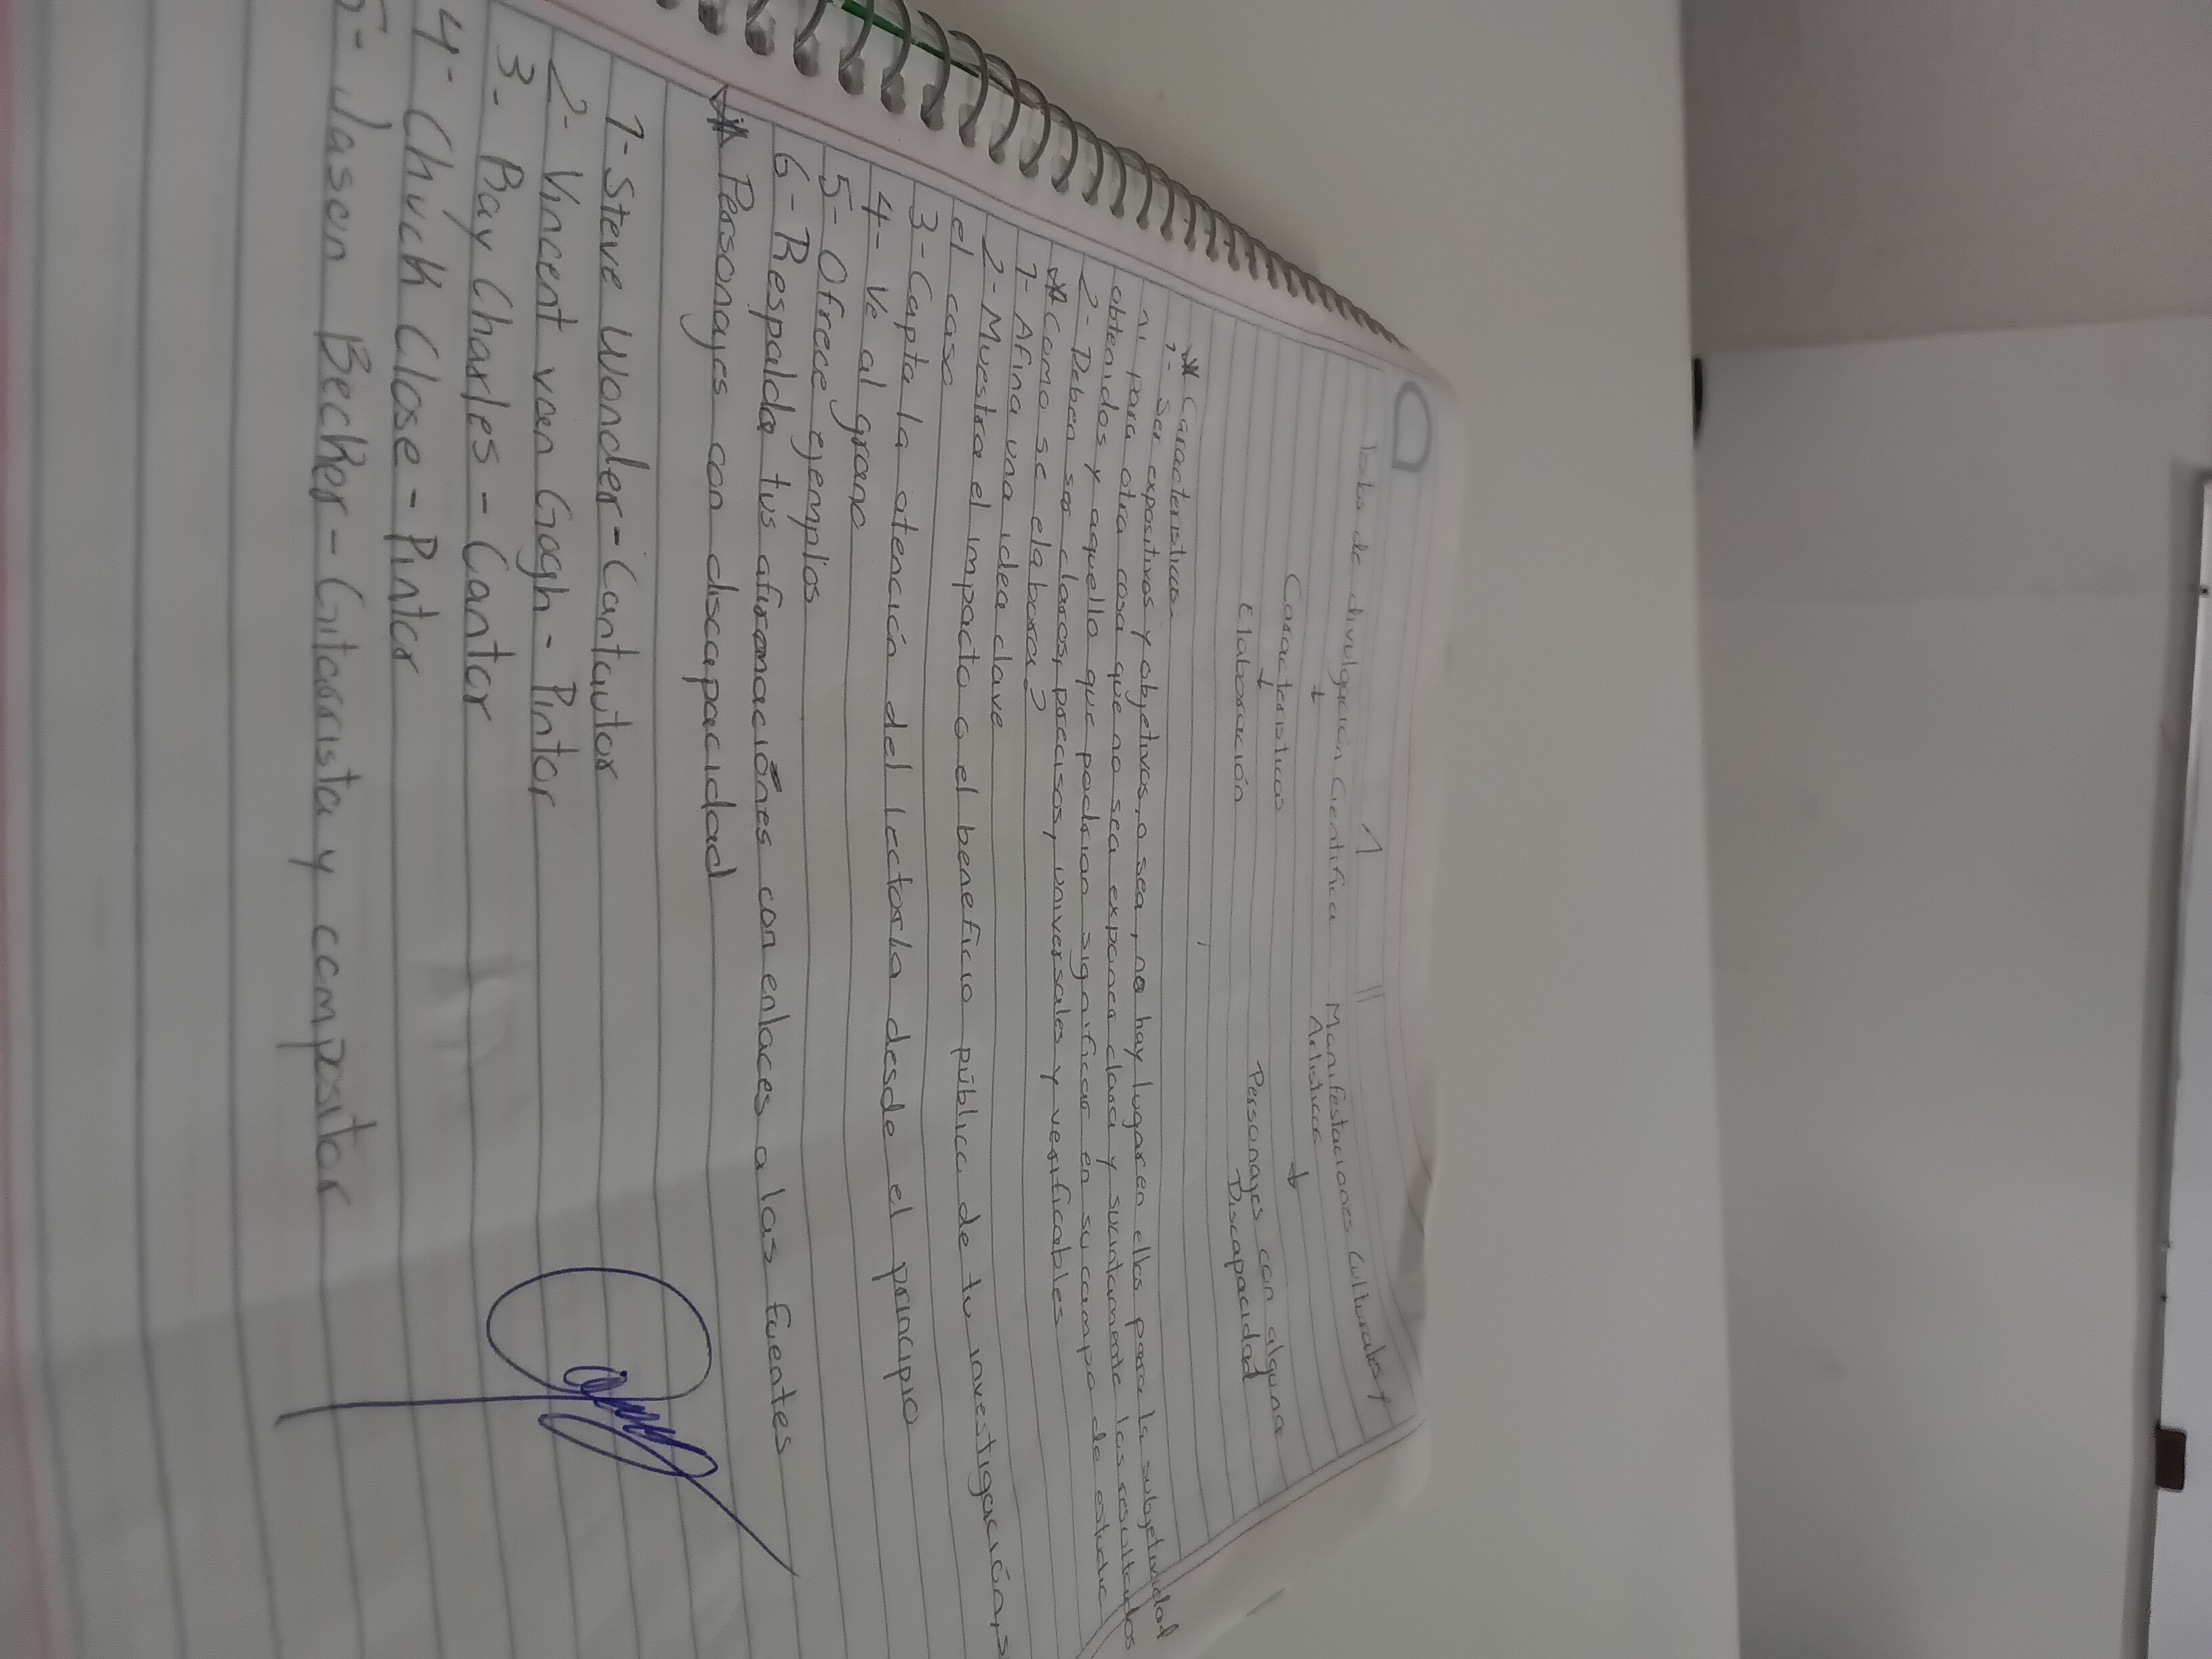 1 11
Texto de divulgación Cientifica Manifestaciones Culturales y
↓ Artisticas
Caracteristicas ↓
↓ Personajes con alguna
Elaboración Discapacidad
* Caracteristicas:
1- Ser expositivos y objetivos, o sea, no hay lugar en ellos para la subjetividad
ni para otra cosa que no sea exponer clara y sucintamente los resultados
obtenidos y aquello que podrian significar en su campo de estudio
2- Deben ser claros, precisos, universales y verificables
* Como se elabora?
1- Afina una idea clave
2- Muestra el impacto o el beneficio público de tu investigación, s
el caso
3- Capta la atención del lector/la desde el principio
4- Ve al grano
5- Ofrece ejemplios
6- Respalda tus afirmaciónes con enlaces a las fuentes
* Personajes con discapacidad
1- Steve Wonder - Cantautor
2- Vincent van Gogh - Pintor
3- Ray Charles - Cantor
4- Chuck Close - Pintor
5- Jason Becker - Gitarrista y compositor